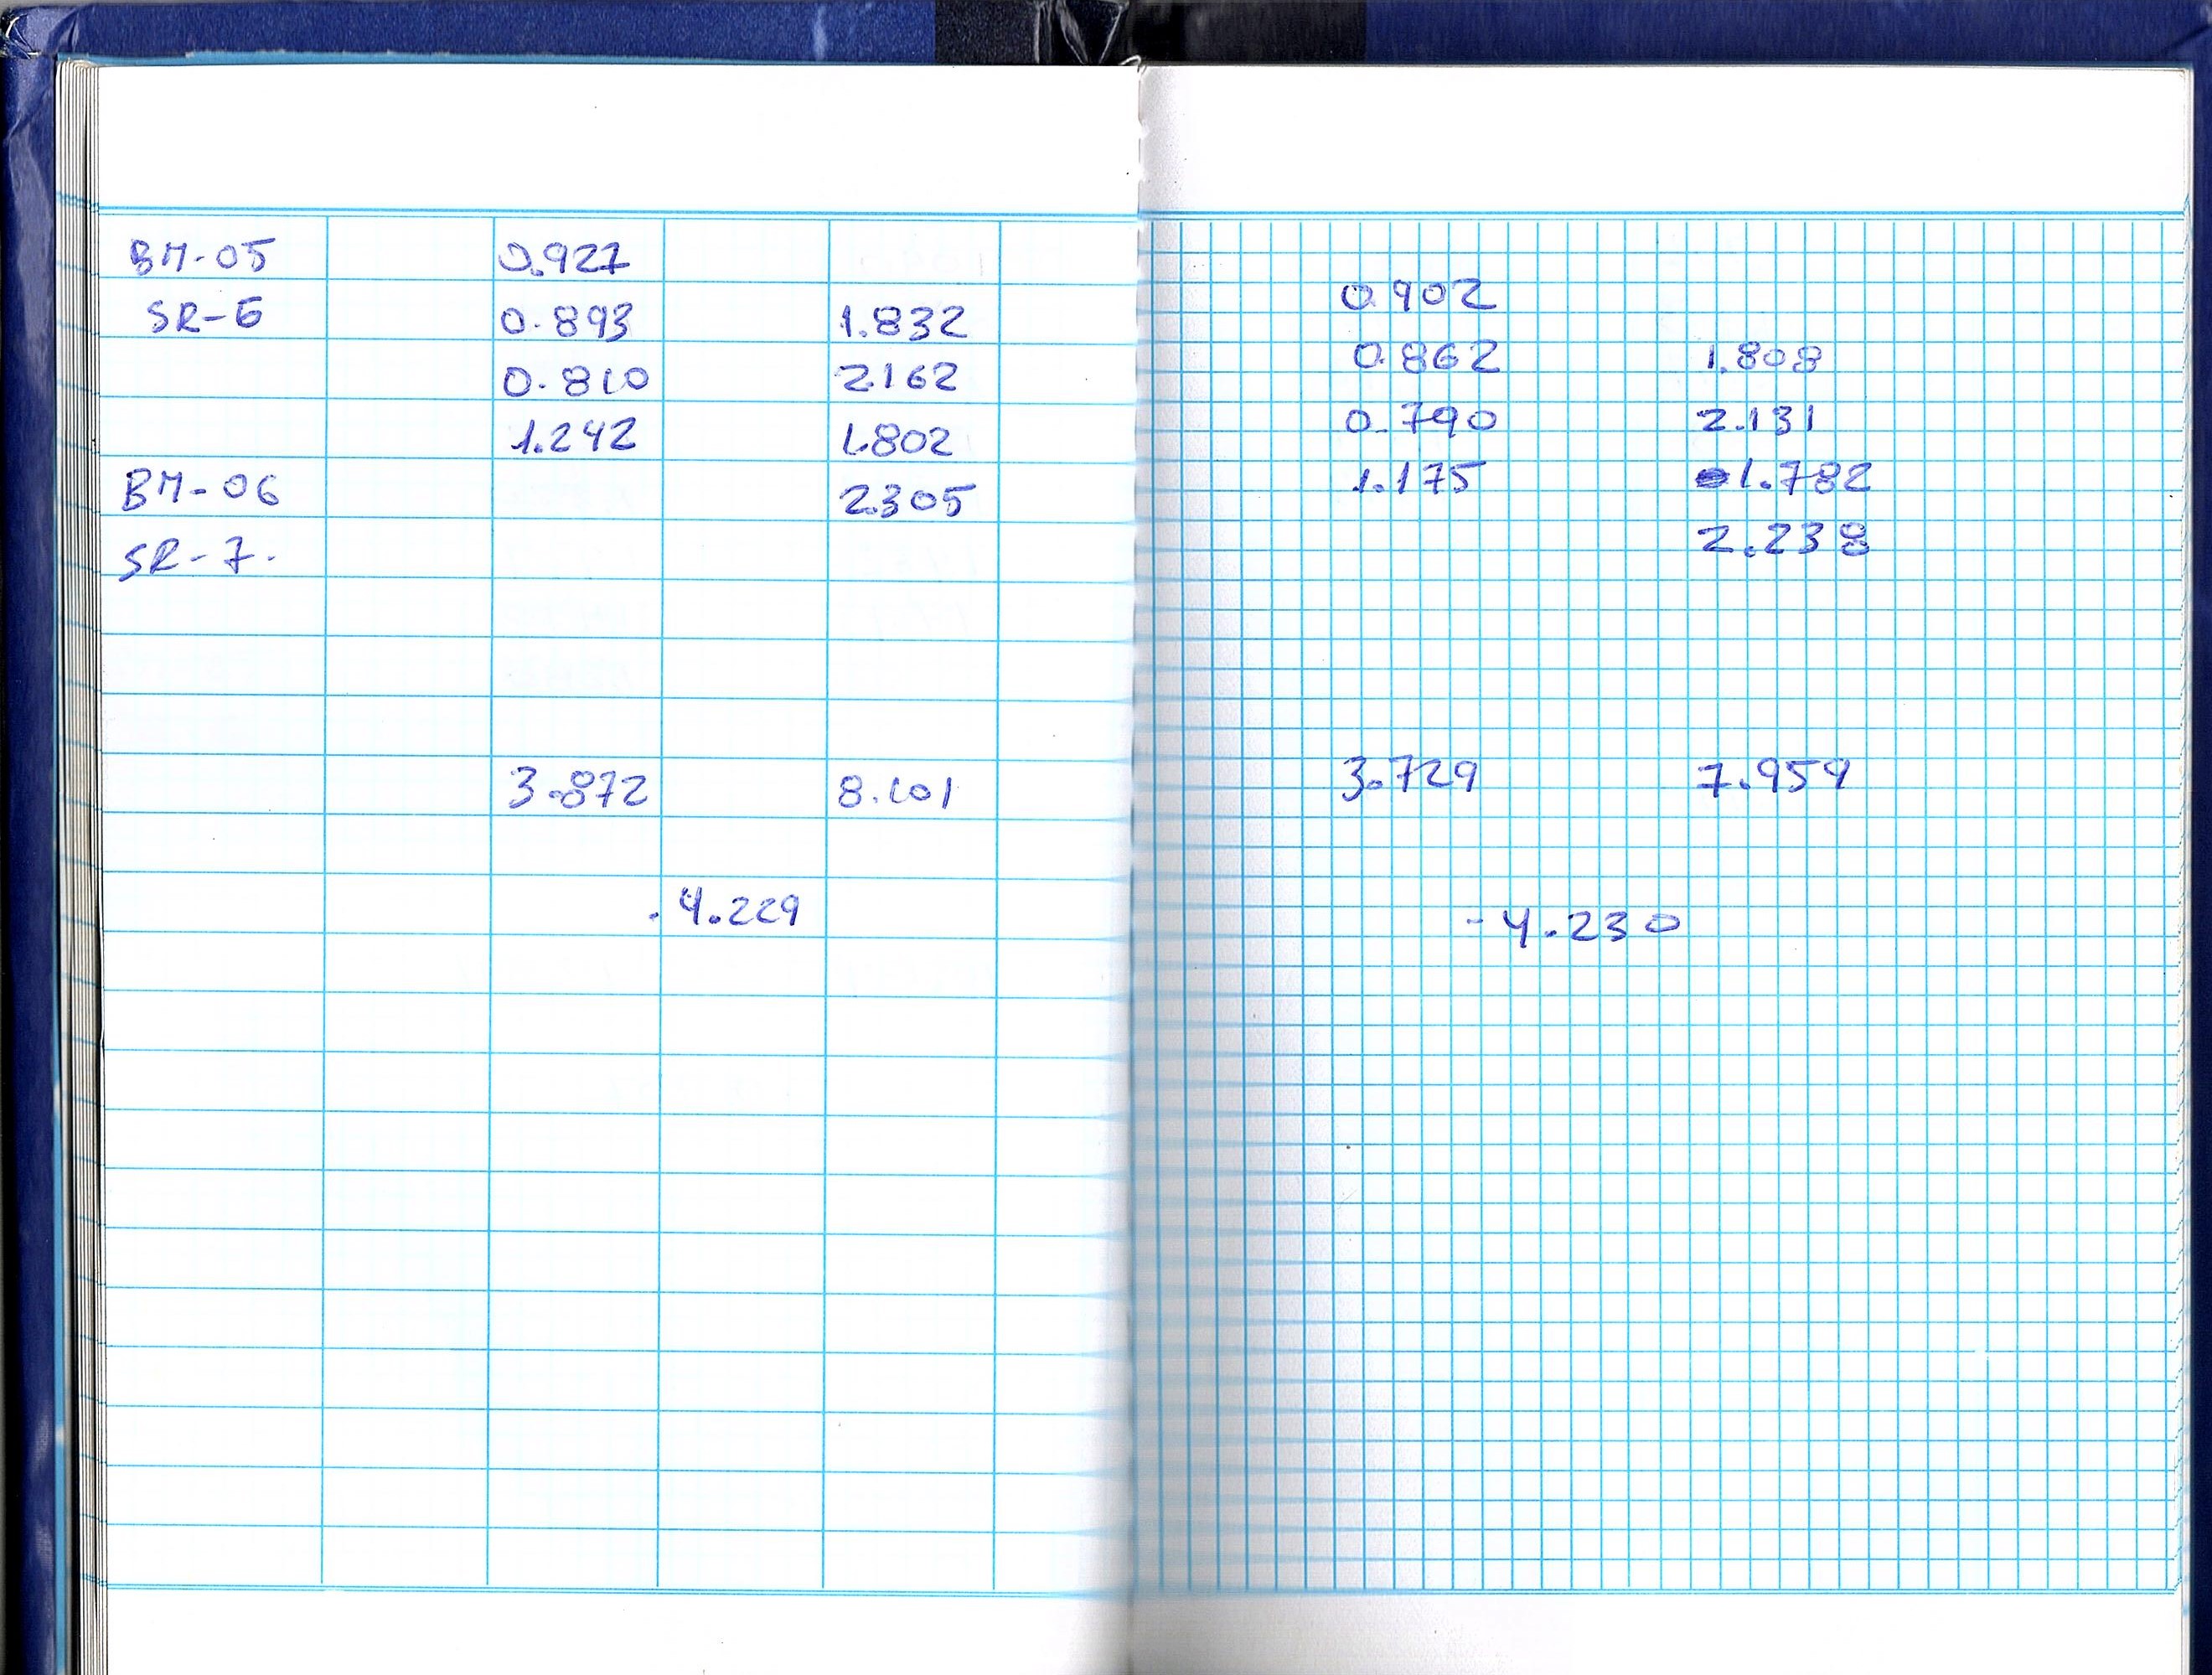 BM-05 0.927
SR-6 0.893 1.832
0.810 2.162
1.242 1.802
BM-06 2.305
SR-7.
3.872 8.101
-4.229
0.902
0.862 1.808
0.790 2.131
1.175 1.782
2.238
3.729 7.959
-4.230